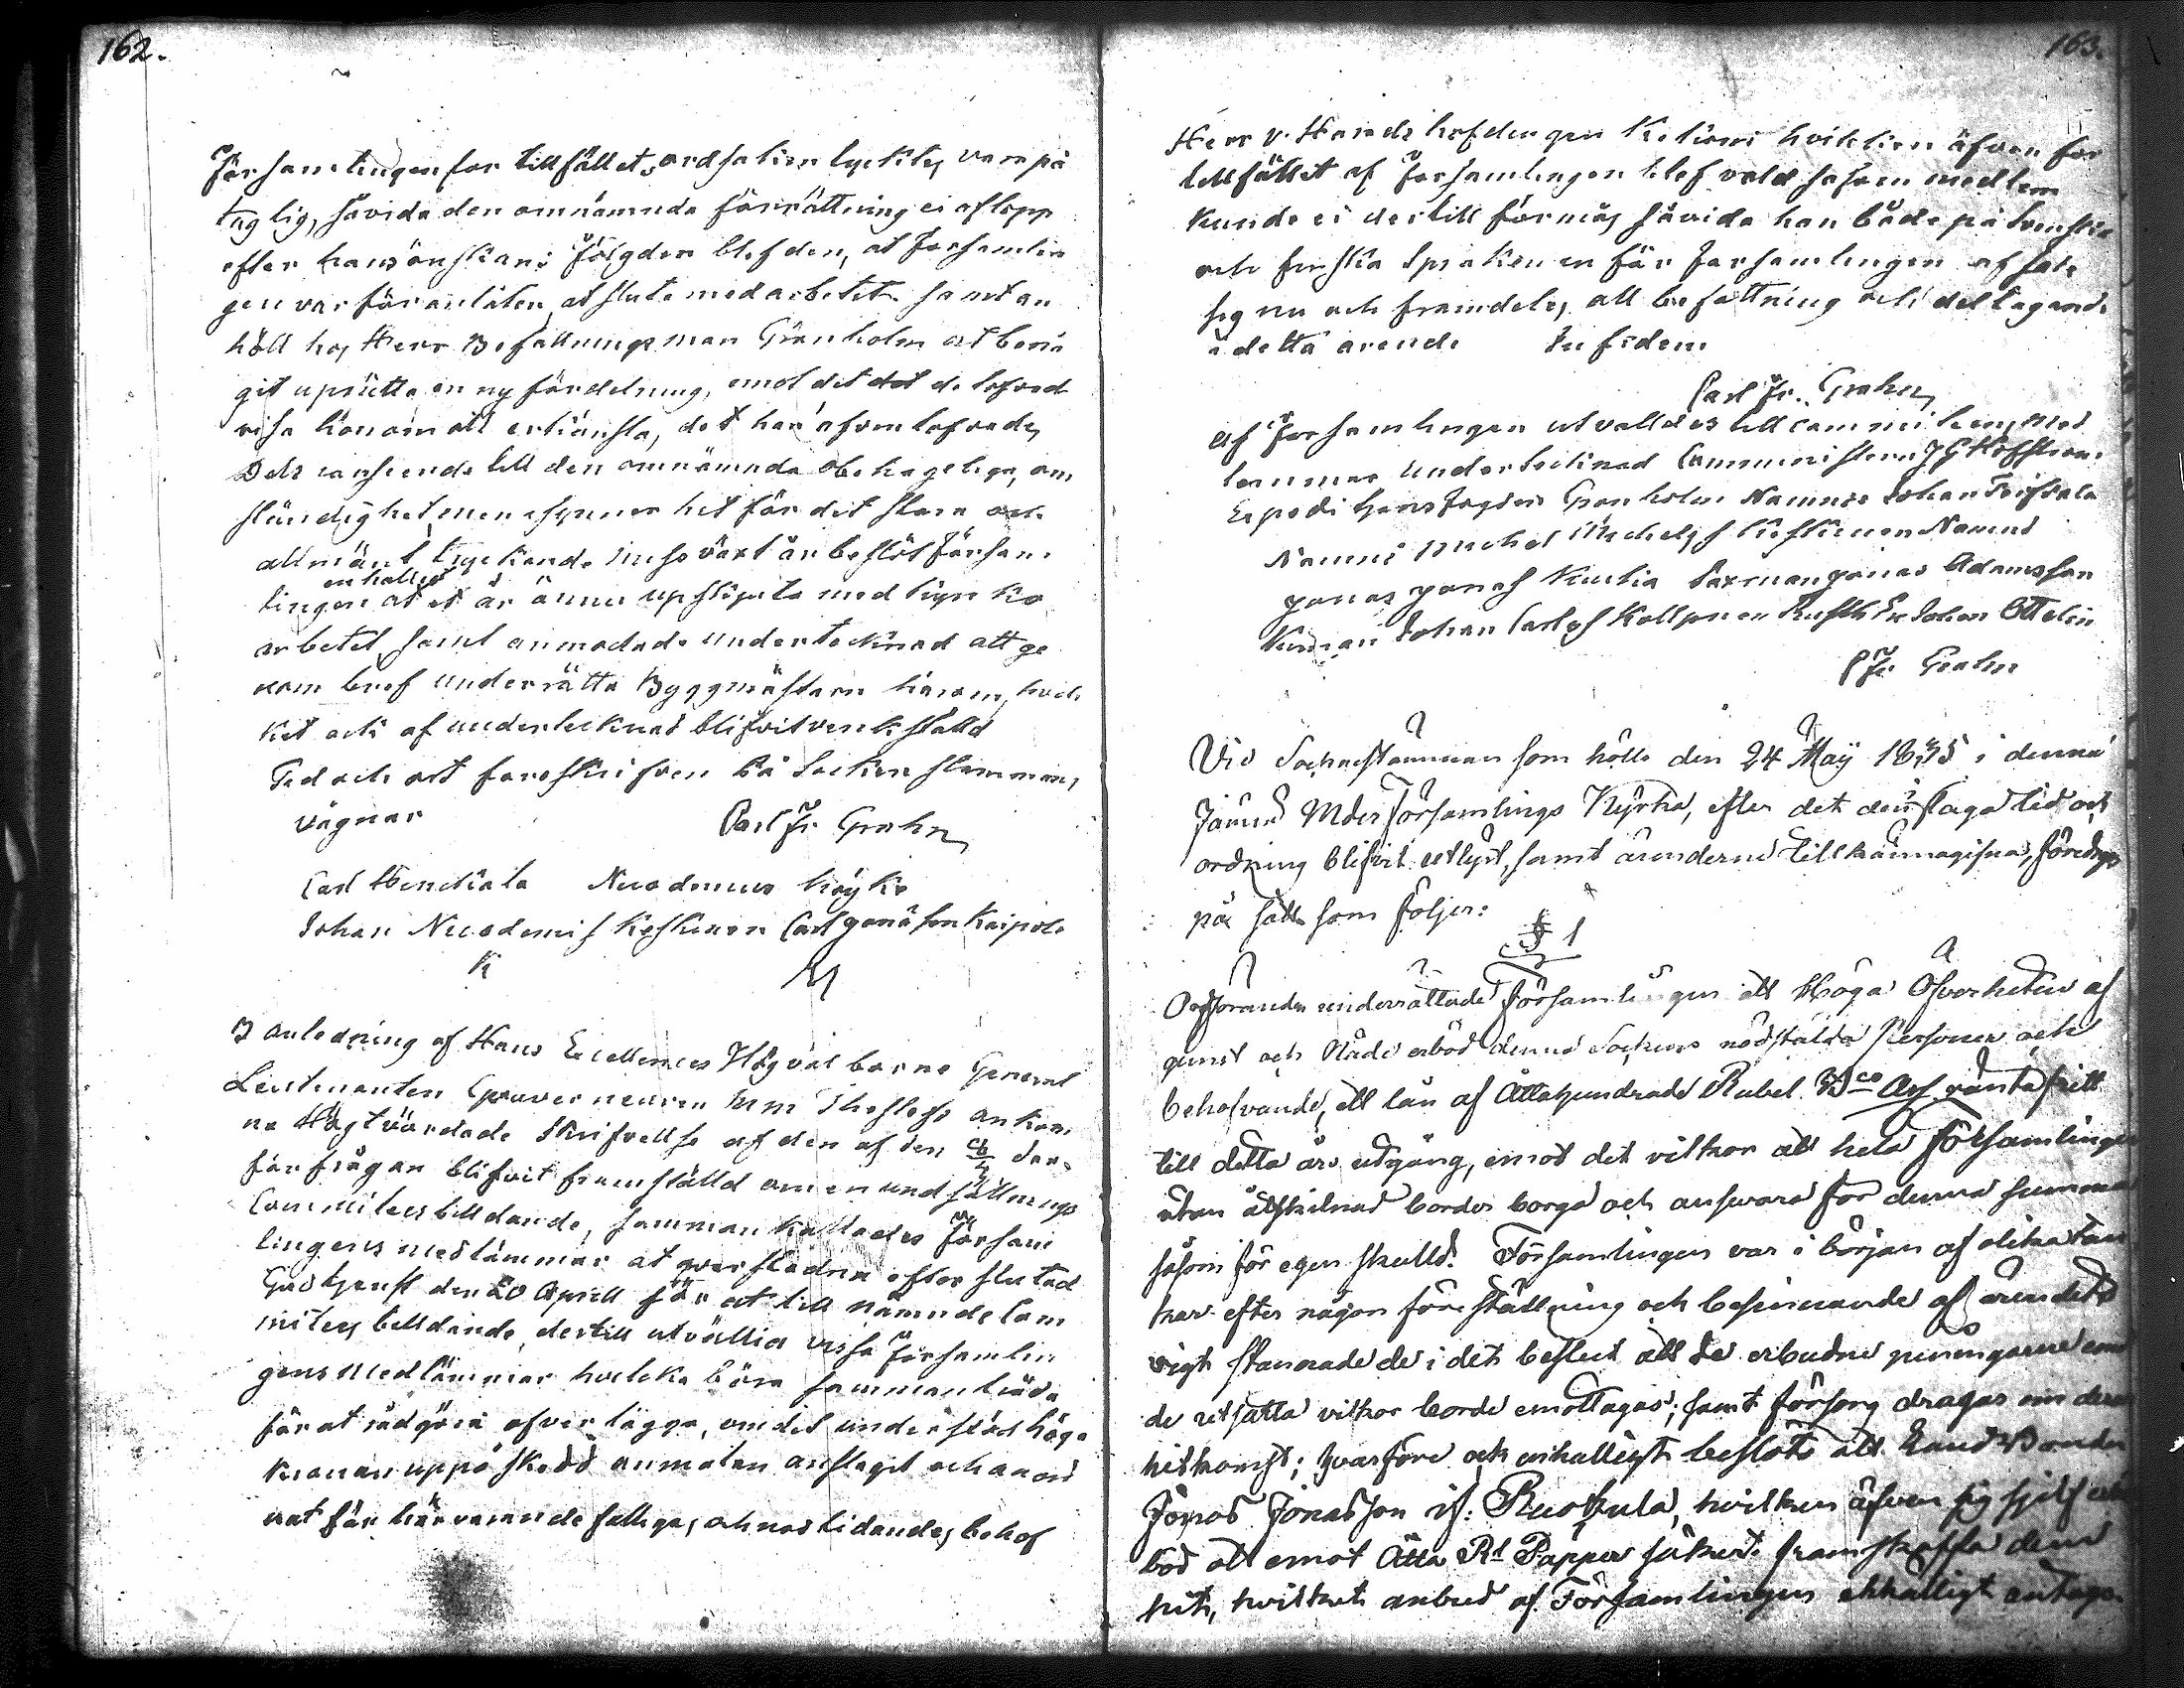 162.
Församlingen för tillfället ordsaker lycktes vara på
taglig, såvida den omnämnda förrättning ei aflopp
efter hans önskan: Följden blef den, at Församlin
gen var föranlåten at sluta med arbetet samt an
höll hos Herr Befallningsman Granholm at benä
git uprätta en ny fördelning, emot det at de lofvad
visa honom all ertiänsla, det han äfven lofvade,
Dels i anseende till den omnämnda obehageliga om
ständighet, men i synnerhet för det stora och
allmänt tryckande missväxt år beslöt Försam
enhälligt
lingen at et år ännu upskjuta med kyrko
arbetet, samt anmodade undertecknad att ge
nom bref underrätta Byggmästarn härom, hvil
ket ock af undertecknad blifvit verkställd
Tid och ort föreskrifven På Sockenstämmans
vägnar Carl Fr. Grahn
Carl Hendichala Nicodemus höykä
Johan Nicodemis Keskinen Carl Jonasson Kaipola
K
I anledning af Hans Excellences Högvälborne General
Leutenanten Gouverneuren m m Thesleffs ankom
na Högtvördade Skrifvellse af den af den dar
förfrågan blifvit framställd om en undsättnings
Committees billdande, sammankallades Försam
lingens medlämmar at qvarstadna efter slutad
Gudstjenst den 20 Aprill för at till nämnde Com
mitees billdande dertill utvällia vissa Församlin
gens medlämmar hvilcka böra sammanträda
för at rådgöra öfverlägga, om det understöd höga
Kronan uppå skedd anmälan anslagit och anord
nat för härvarande fattigas och nödlidandes behof
163.
Herr v. Häradshöfdingen Ketloni hvilcken äfven för
tillfället af Församlingen blef vald såsom medlem
kunde ei dertill förmås såvida han både på Svenska
och finska Språken in för Församlingen afsade
sig nu och framdeles all befattning och deltagande
i detta ärende In fidem
Carl Fr. Grahn
Af Församlingen utvalldes till committeens med
lemmar undertecknad Comministern J G Hoffström
Expeditionsfogden Granholm Nämnde Johan
Nämnd Michel Michelss Keskinen Nämnd
Jonas Jonass Kurkia Sexman Jonas Adamsson
Johan Carlss Kollpanen Rusth Er Johan Ottelin
C Fr Grahn
Vid Sockenstämman som hölls den 24 Maÿ 1835 i denna
Jämsä Moder Församlings Kÿrka, efter det deruti laga tid och
ordning blifvit utlyst, samt ärenderne tillkännagifna, föredrogs
på sätt som följer:
§ 1
Ordförande underrättade Församlingen att Höga Öfverheten af
gunst och Nåde erböd denna Sockens nödstälda Personer och
behofvande, ett lån af Åttahundrade Rubel Bco Ass räntefritt
till detta års utgång, emot det vilkor att hela Församlingen
utan åtskilnad bordes borga och answara för denna summa
såsom för egen skulld. Församlingen var i början af olika tan
kar efter någon föreställning och besinnande af ärendets
vigt stannade de i det beslut att de erbudne penningarne emot
de utsatta vilkor borde emottagas; samt försorg dragas om deras
hitkomst; hvarföre ock enhälligt beslöts att Land Bonden
Jonas Jonasson if: Ruohula, hvilken äfven sig sjelf ut
bod att emot Åtta Rd Papper säkert framskaffa dem
hit, hvilket anbud af Församlingen enhälligt antogs.